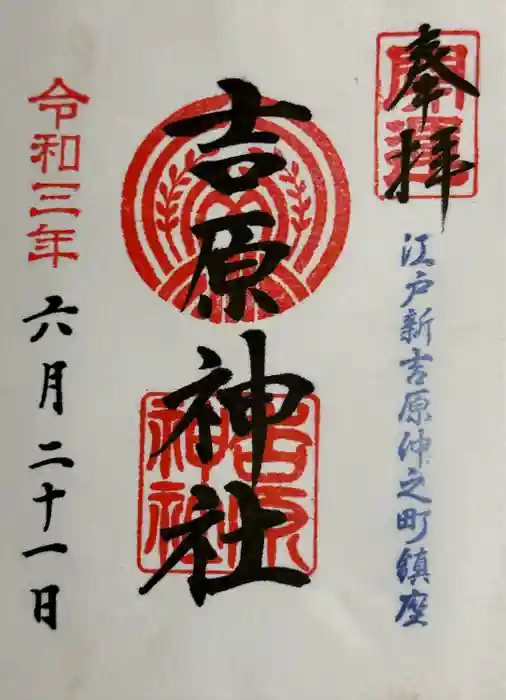 奉拝
開運
江戸新吉原仲之町鎮座
吉原神社
吉原神社
令和三年
六月二十一日